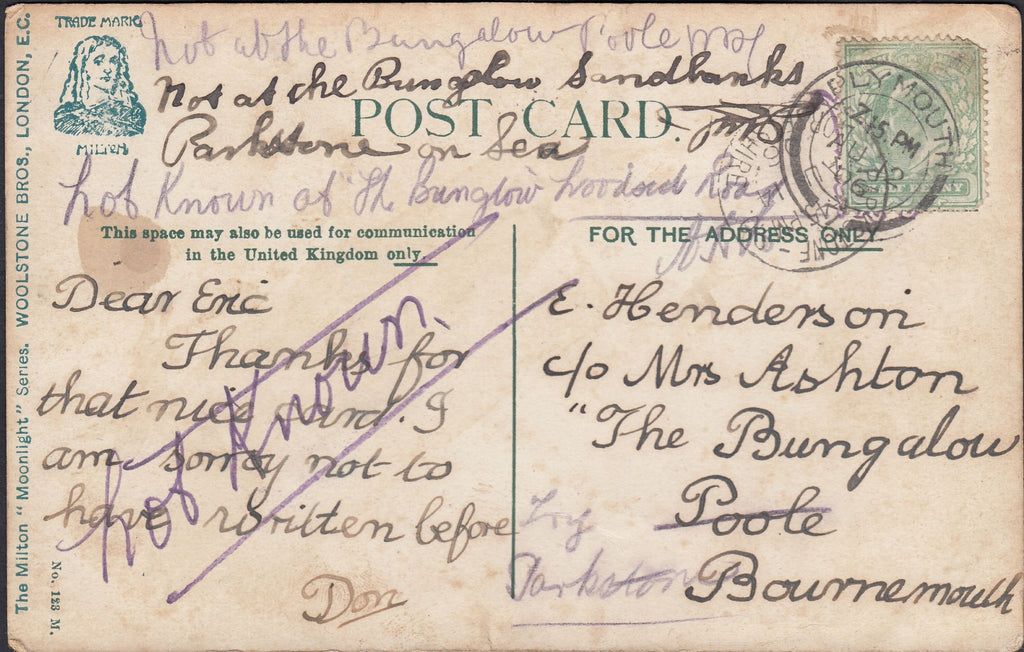 The Milton "Moonlight" Series. WOOLSTONE BROS., LONDON, E.C.
No. 123 M.
TRADE MARK
MILTON
Not at the Bungalow Poole
Not at the Bunglow Sandbanks
POST CARD
Parkstone on Sea
Not Known at The Bunglow Road
This space may also be used for communication
in the United Kingdom only.
FOR THE ADDRESS ONLY
PLYMOUTH
2.15 PM
HALFPENNY
Dear Eric
Thanks for
that nice card. I
am sorry not to
have written before
Don
Not Known.
E. Henderson
c/o Mrs Ashton
"The Bungalow
Poole
Try
Parkstone
Bournemouth